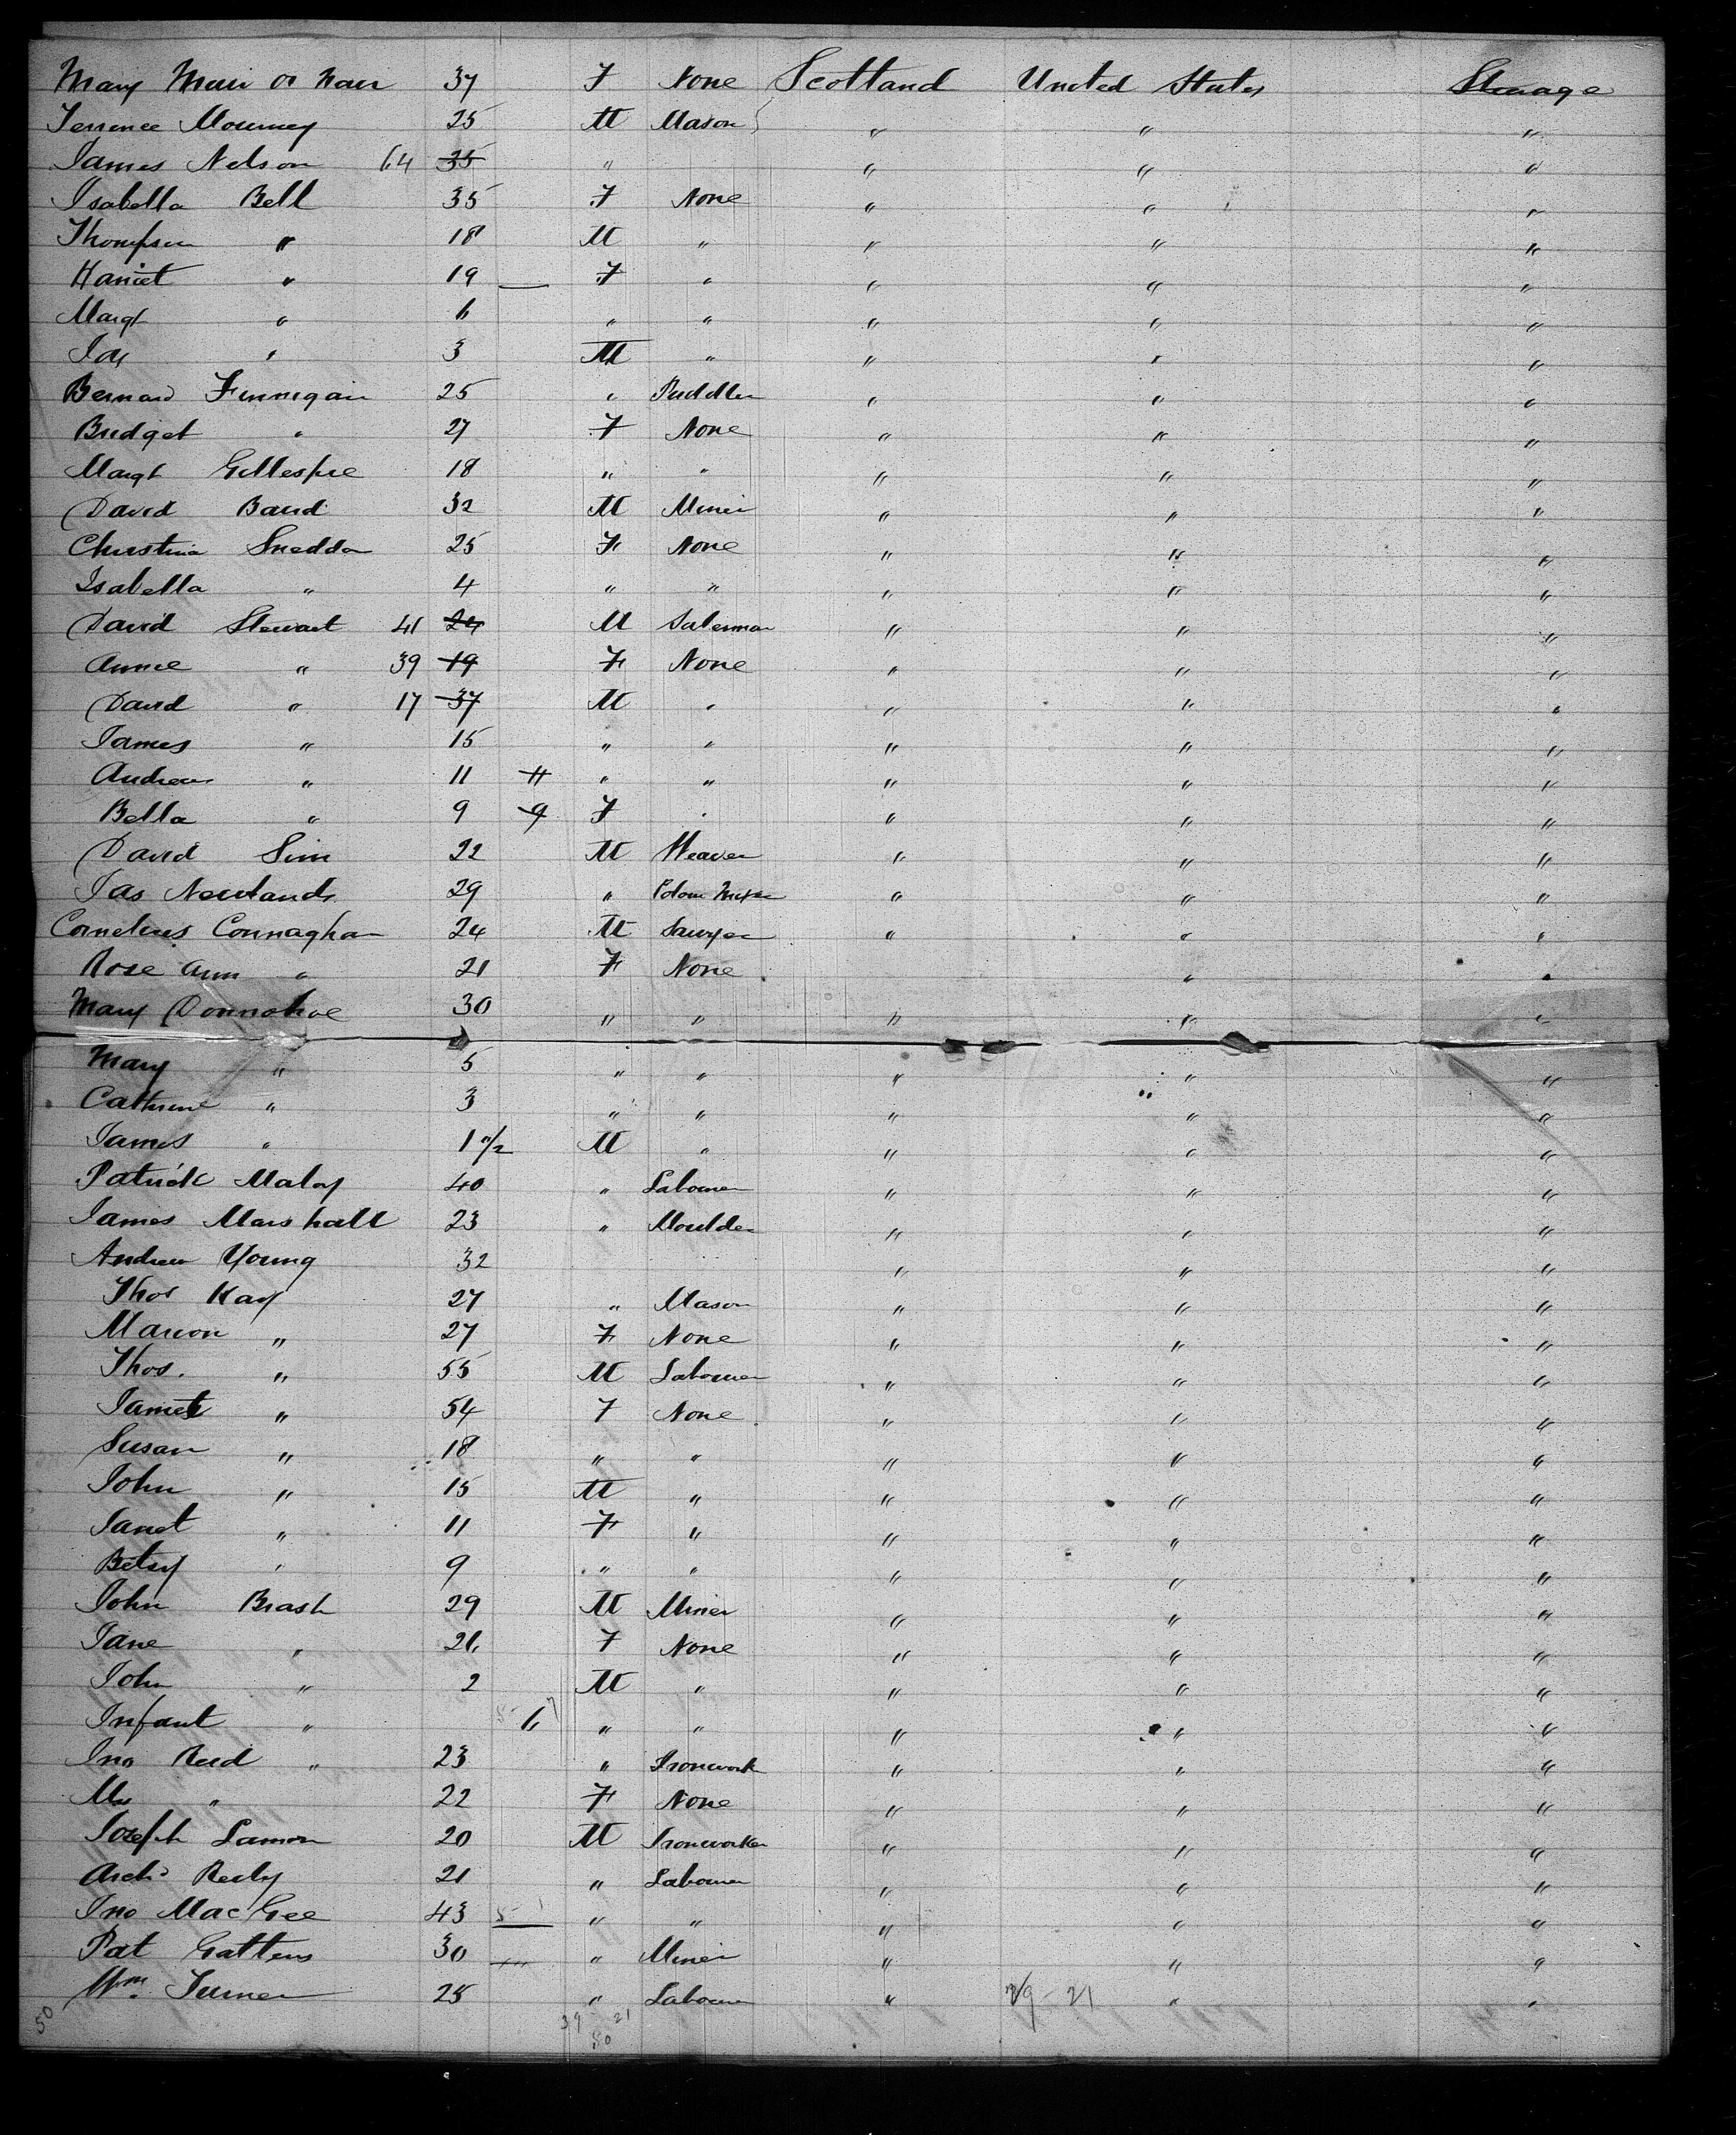 Mary Muir or Nair 37 F None Scotland United States Steerage
Terrence 25 M Mason " " "
James Nelson 64 35 " " " "
Isabella Bell 35 F None " " "
Thompson " 18 M " " " "
Harriet " 19 F " " " "
Margt " 6 " " " " "
Jas " 3 M " " " "
Bernard Finnegan 25 " Puddler " " "
Bridget " 27 F None " " "
Margt Gillespie 18 " " " " "
David Baird 32 M Miner " " "
Christina Sneddon 25 F None " " "
Isabella " 4 " " " " "
David Stewart 41 24 M " " "
Annie " 39 19 F None " " "
David " 17 37 M " " " "
James " 15 " " " " "
Andrew " 11 11 " " " " "
Bella " 9 9 F " " " "
David Sim 22 M Weaver " " "
Jas Newlands 29 " " " "
Cornelius Connaghan 24 M Sawyer " " "
Rose Ann " 21 F None " "
Mary Donnohoe 30 " " " " "
Mary " 5 " " " " "
Cathrine " 3 " " " " "
James " 1 M " " " "
Patrick Maloy 40 " Labourer " " "
James Marshall 23 " Moulder " " "
Andrew Young 32 " " "
Thos Kay 27 " Mason " " "
Marion " 27 F None " " "
Thos. " 55 M Labourer " " "
Janet " 54 F None " " "
Susan " 18 " " " " "
John " 15 M " " " "
Janet " 11 F " " " "
Betsy " 9 " " " " "
John Brash 29 M Miner " " "
Jane " 26 F None " " "
John " 2 M " " " "
Infant " " " " " "
Jno Reid " 23 " Ironwork " " "
Mrs " 22 F None " " "
Joseph Lamon 20 M Ironworker " " "
Archd Reily 21 " Labourer " " "
Jno MacGee 43 " " " " "
Pat Gattens 30 " Miner " " "
Wm. Turner 25 " Labourer " 29-21 " "
50 39 21
50